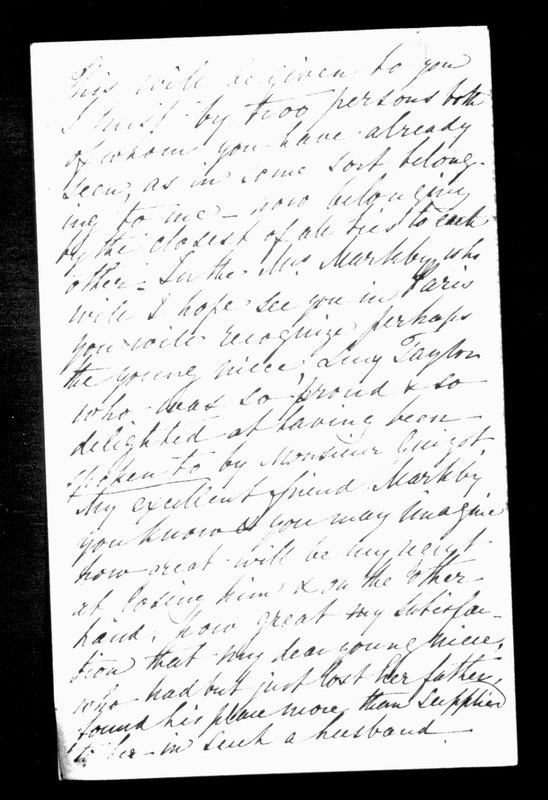 This will be given to you
I trust by two persons both
of whom you have already
seen, as in some sort belong-
ing to me - now belonging
by the closest of all ties to each
other - In the Mrs Markby who
will I hope see you in Paris
you will recognize perhaps
the young niece Lucy Taylor
who was so proud & so
delighted at having been
spoken to by Monsieur Guizot
My excellent friend Markby
you know & you may imagine
how great will be my regret
at losing him & on the other
hand, how great my satisfac-
tion that my dear young niece,
who had but just lost her father,
found his place more than supplied
to her - in such a husband